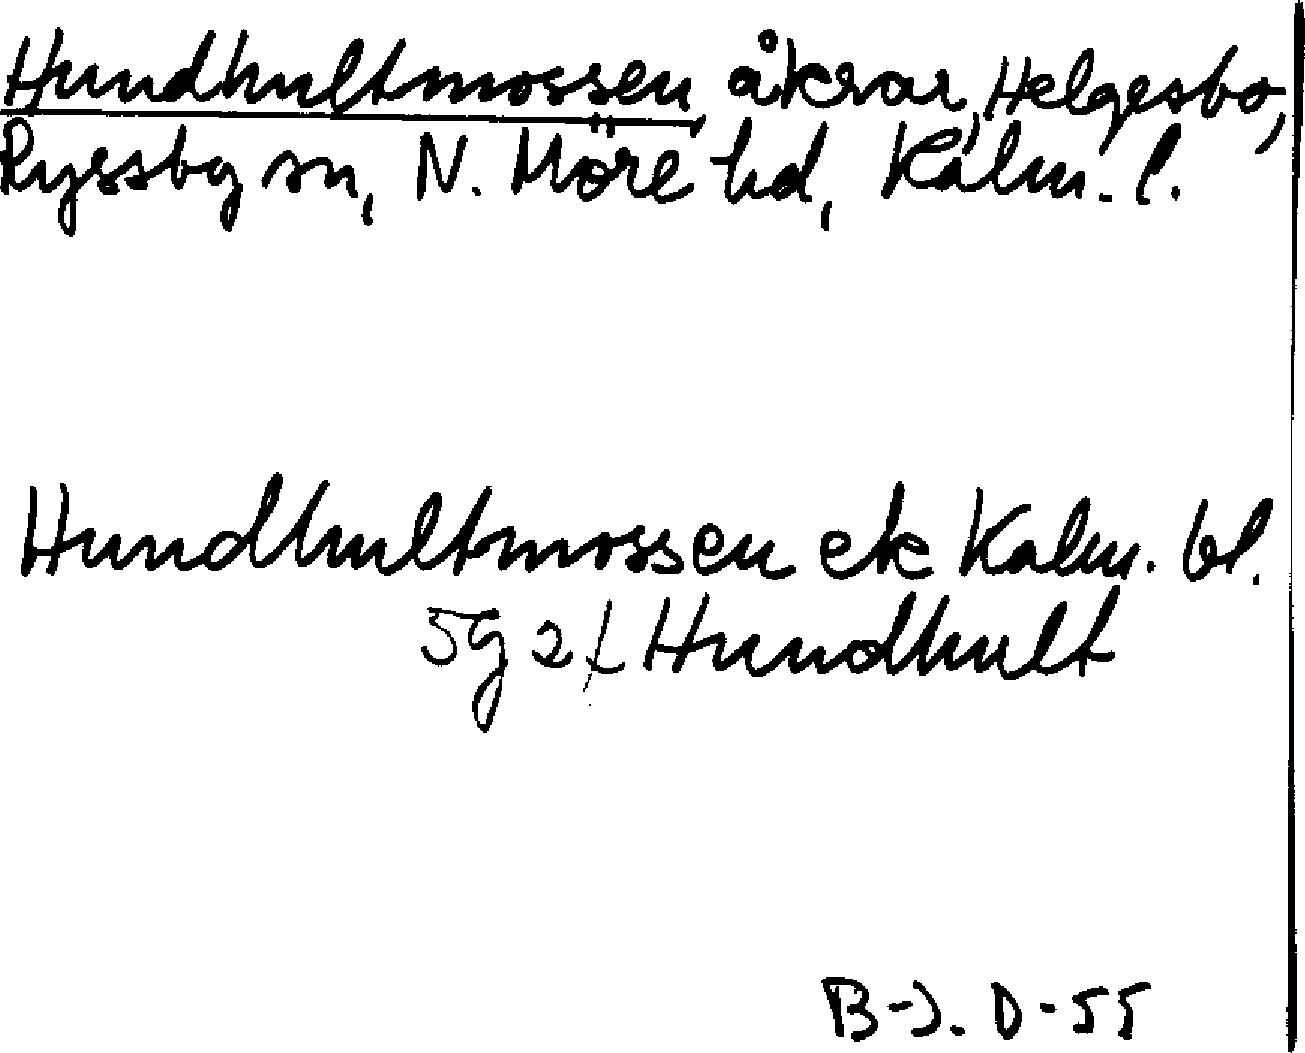 Hundhultmossen, åkrar, Helgesbo,
Ryssbg sn, N. Möre hd, Kalm. l.
Hundhultmossen ek Kalm. bl.
5g 2f Hundhult
B-J. D-55